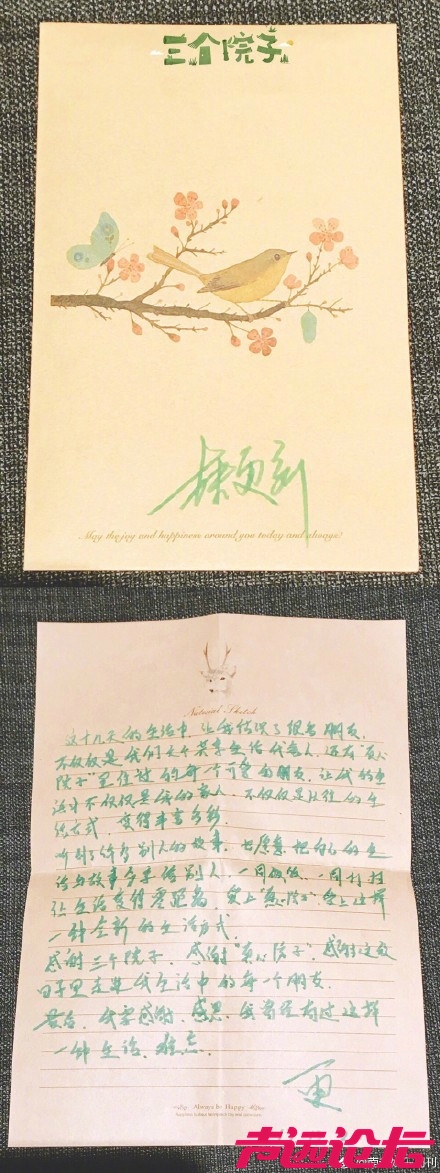 三个院子
徐更新
May the joy and happiness around you today and always!
Natural Sketch
这十几天的生活中，让我结识了很多朋友，
不仅仅是我们三个共享生活代言人，还有“真心
院子”里住过的每个可爱的朋友，让我的生
活中不仅仅是我的家人，不仅仅是以往的生
活方式，变得丰富多彩
听到了许多别人的故事，也愿意把自己的生
活与故事分享给别人，一同做饭，一同打扫
让生活变得零距离，爱上“真心院子”，爱上这样
一种全新的生活方式。
感谢三个院子，感谢“真心院子”，感谢这段
日子里走进我生活中的每一个朋友
最后，我要感谢、感恩，我曾经有过这样
一种生活，难忘。
Always be Happy
更
声远论坛